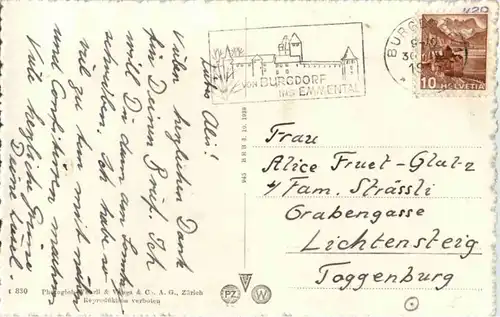 420
BURG
30
10 HELVETIA
VON BURGDORF
INS EMMENTAL
Liebs Alis!
Vielen herzlichen Dank
für Deinen Brief. Ich
will Dir dann am
schreiben. Ich habe so
viel zu tun mit nähen
und Confitüren machen
Viele herzliche Grüsse
Deine
Frau
Alice Fruet-Glatz
c/ Fam. Strässli
Grabengasse
Lichtensteig
Toggenburg
t 830
Photoglob-Wehrli & Vouga & Co. A. G., Zürich
Reproduktion verboten
PZ
W